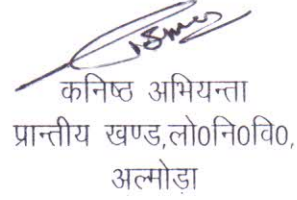 कनिष्ठ अभियन्ता
प्रान्तीय खण्ड,लो0नि0वि0,
अल्मोड़ा